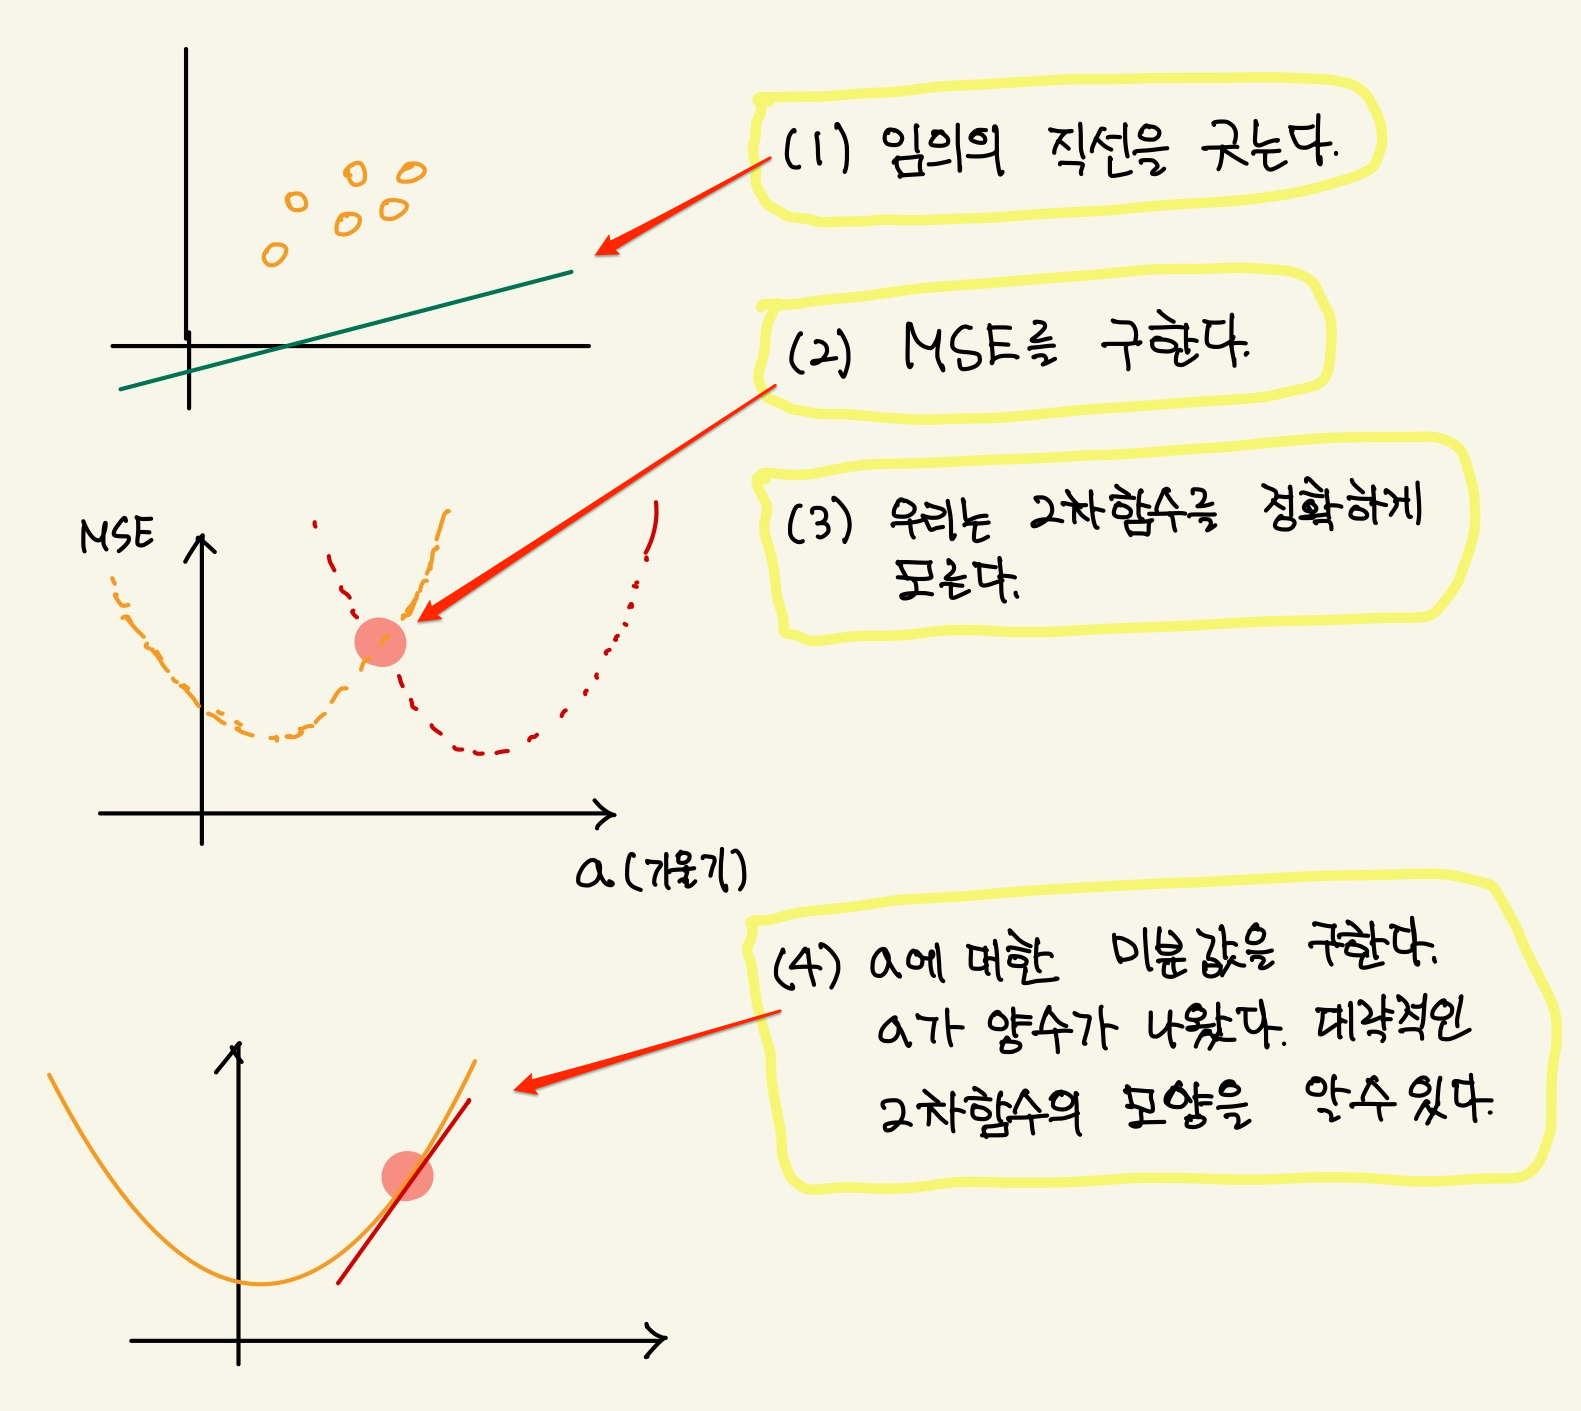 (1) 임의의 직선을 긋는다.
(2) MSE를 구한다.
(3) 우리는 2차함수를 정확하게
모른다.
MSE
a (기울기)
(4) a에 대한 미분값을 구한다.
a가 양수가 나왔다. 대략적인
2차함수의 모양을 알 수 있다.